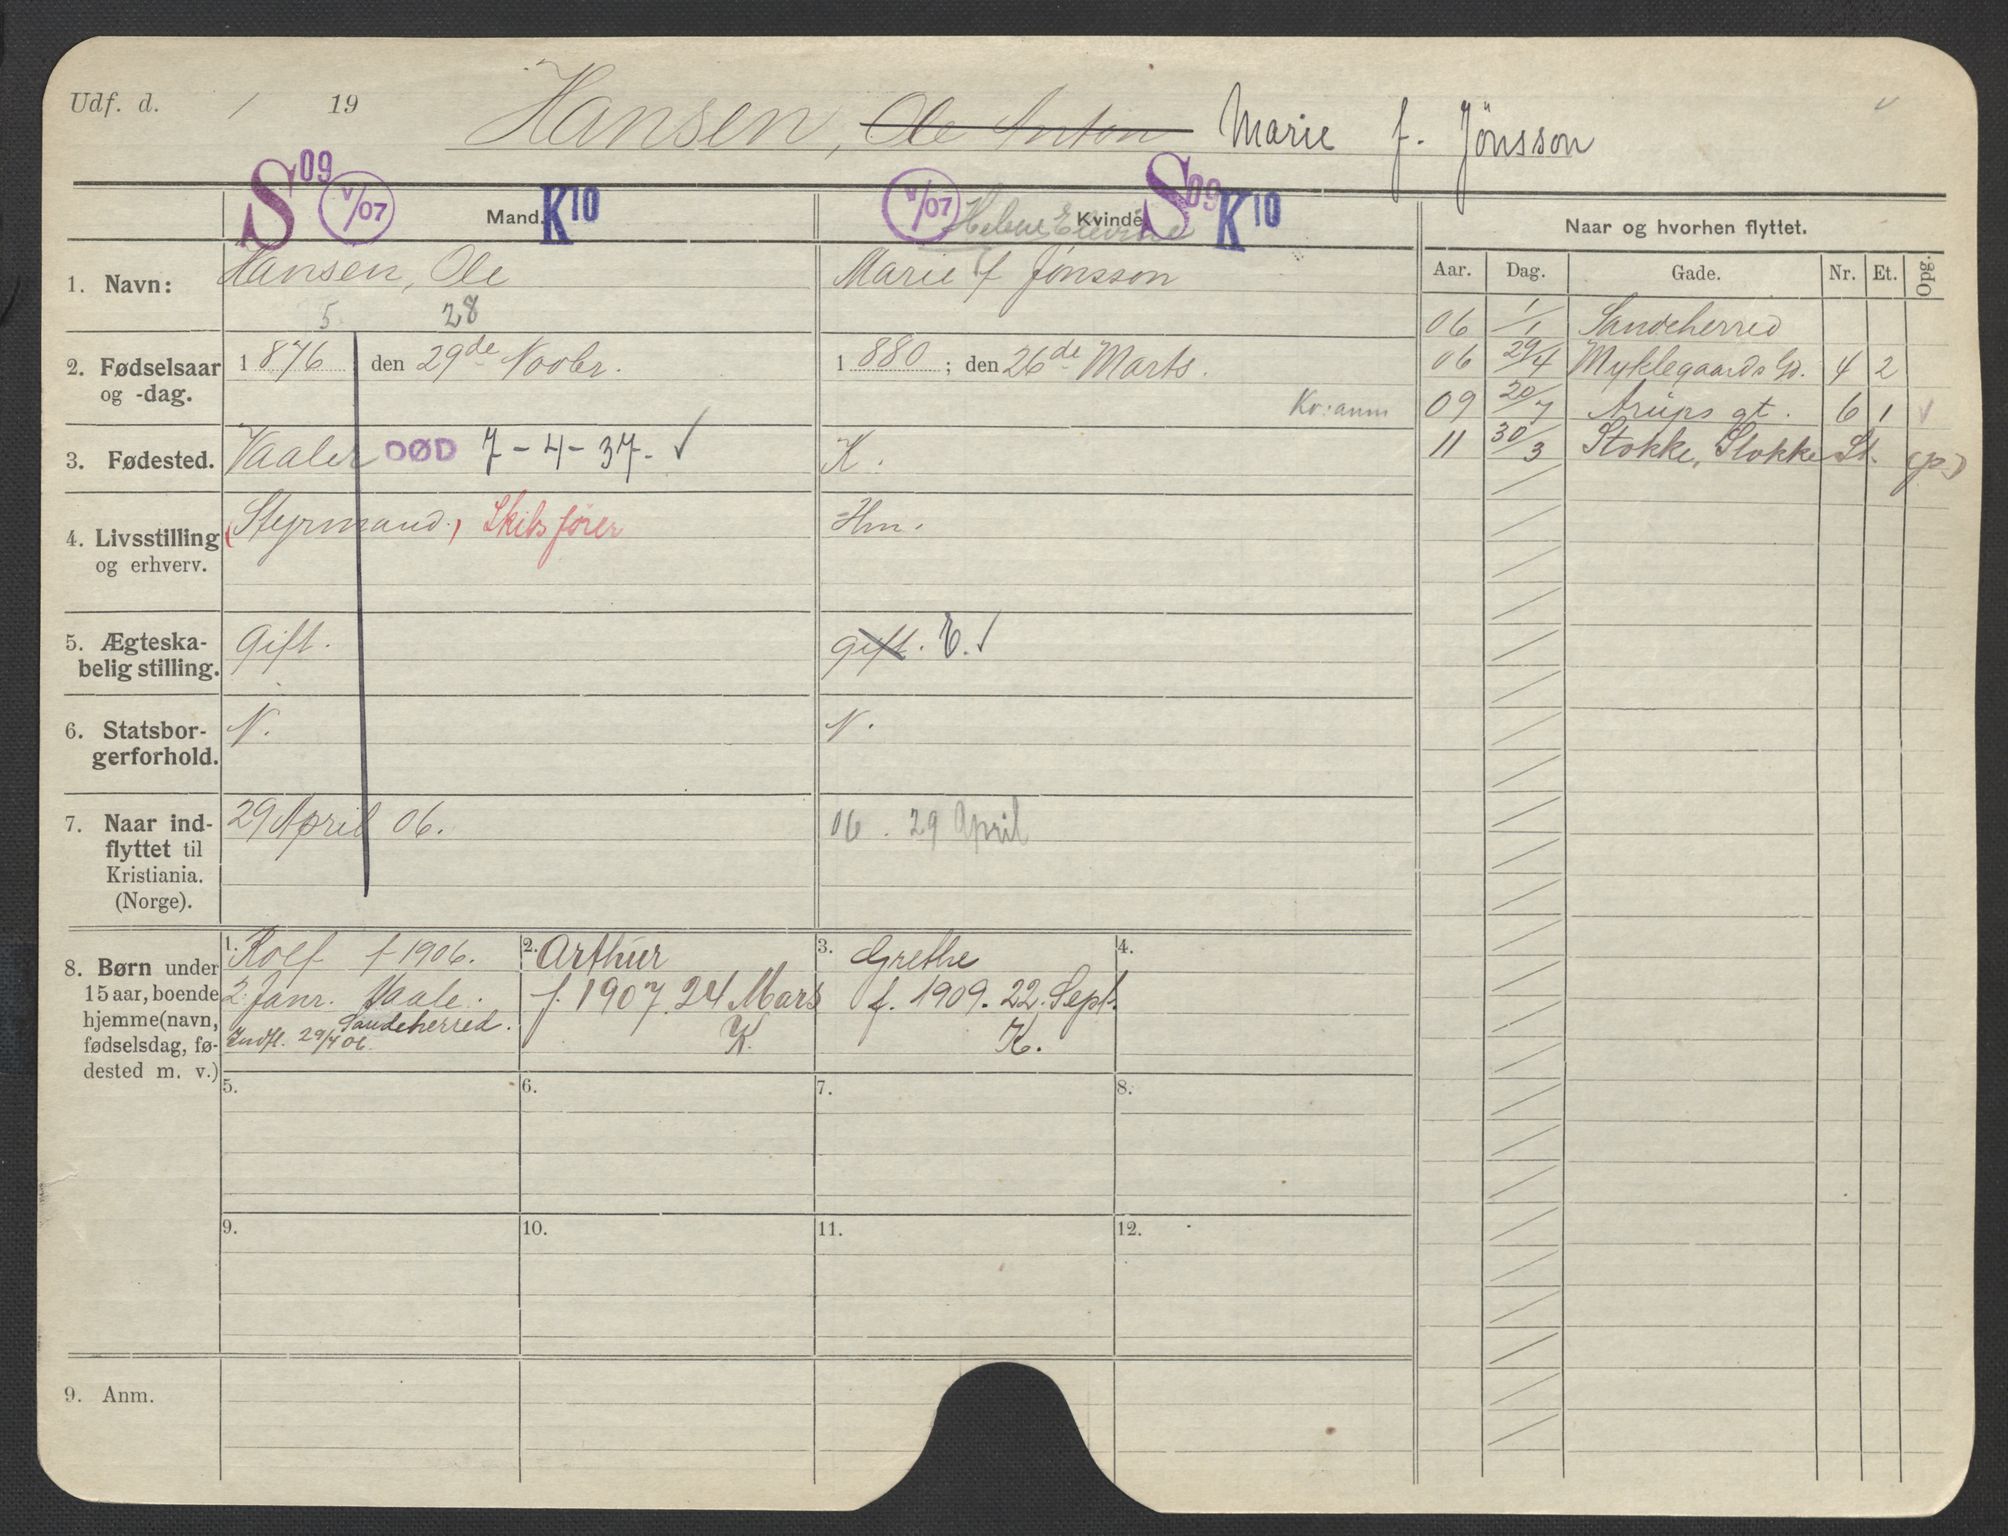 Udf. d. / 19
Hansen, Ole Anton Marie f. Jönsson
S 09 V/07 Mand. K10 V/07 Helene Kvinde S 09 K10 Naar og hvorhen flyttet.
Aar. Dag. Gade. Nr. Et. Opg.
1. Navn: Hansen, Ole Marie f Jönsson
06 1/1 Sandeherred
5 28
2. Fødselsaar og -dag. 1876 den 29de Novbr. 1880; den 26de Marts.
06 29/4 Myklegaards Gd. 4 2
Kv: anm
09 20/7 Arups gt. 6 1 v
3. Fødested. Vaaler DØD 7-4-37. ✓ K.
11 30/3 Stokke, Stokke St. (p.)
4. Livsstilling og erhverv. (Styrmand.) Skibsfører Hm.
5. Ægteskabelig stilling. Gift. gift. E. ✓
6. Statsborgerforhold. N. N.
7. Naar indflyttet til Kristiania. (Norge). 29 April 06. 06. 29 April
8. Børn under
15 aar, boende
hjemme (navn,
fødselsdag, fø-
dested m. v.)
1. Rolf f 1906.
2. Janr. Vaale.
Sandeherred.
Indfl. 29/4 06.
2. Arthur
f. 1907 24 Mars
K.
3. Grethe
f. 1909. 22. Sept.
K.
4.
5. 6. 7. 8.
9. 10. 11. 12.
9. Anm.